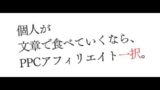 個人が
文章で食べていくなら、
PPCアフィリエイト一択。